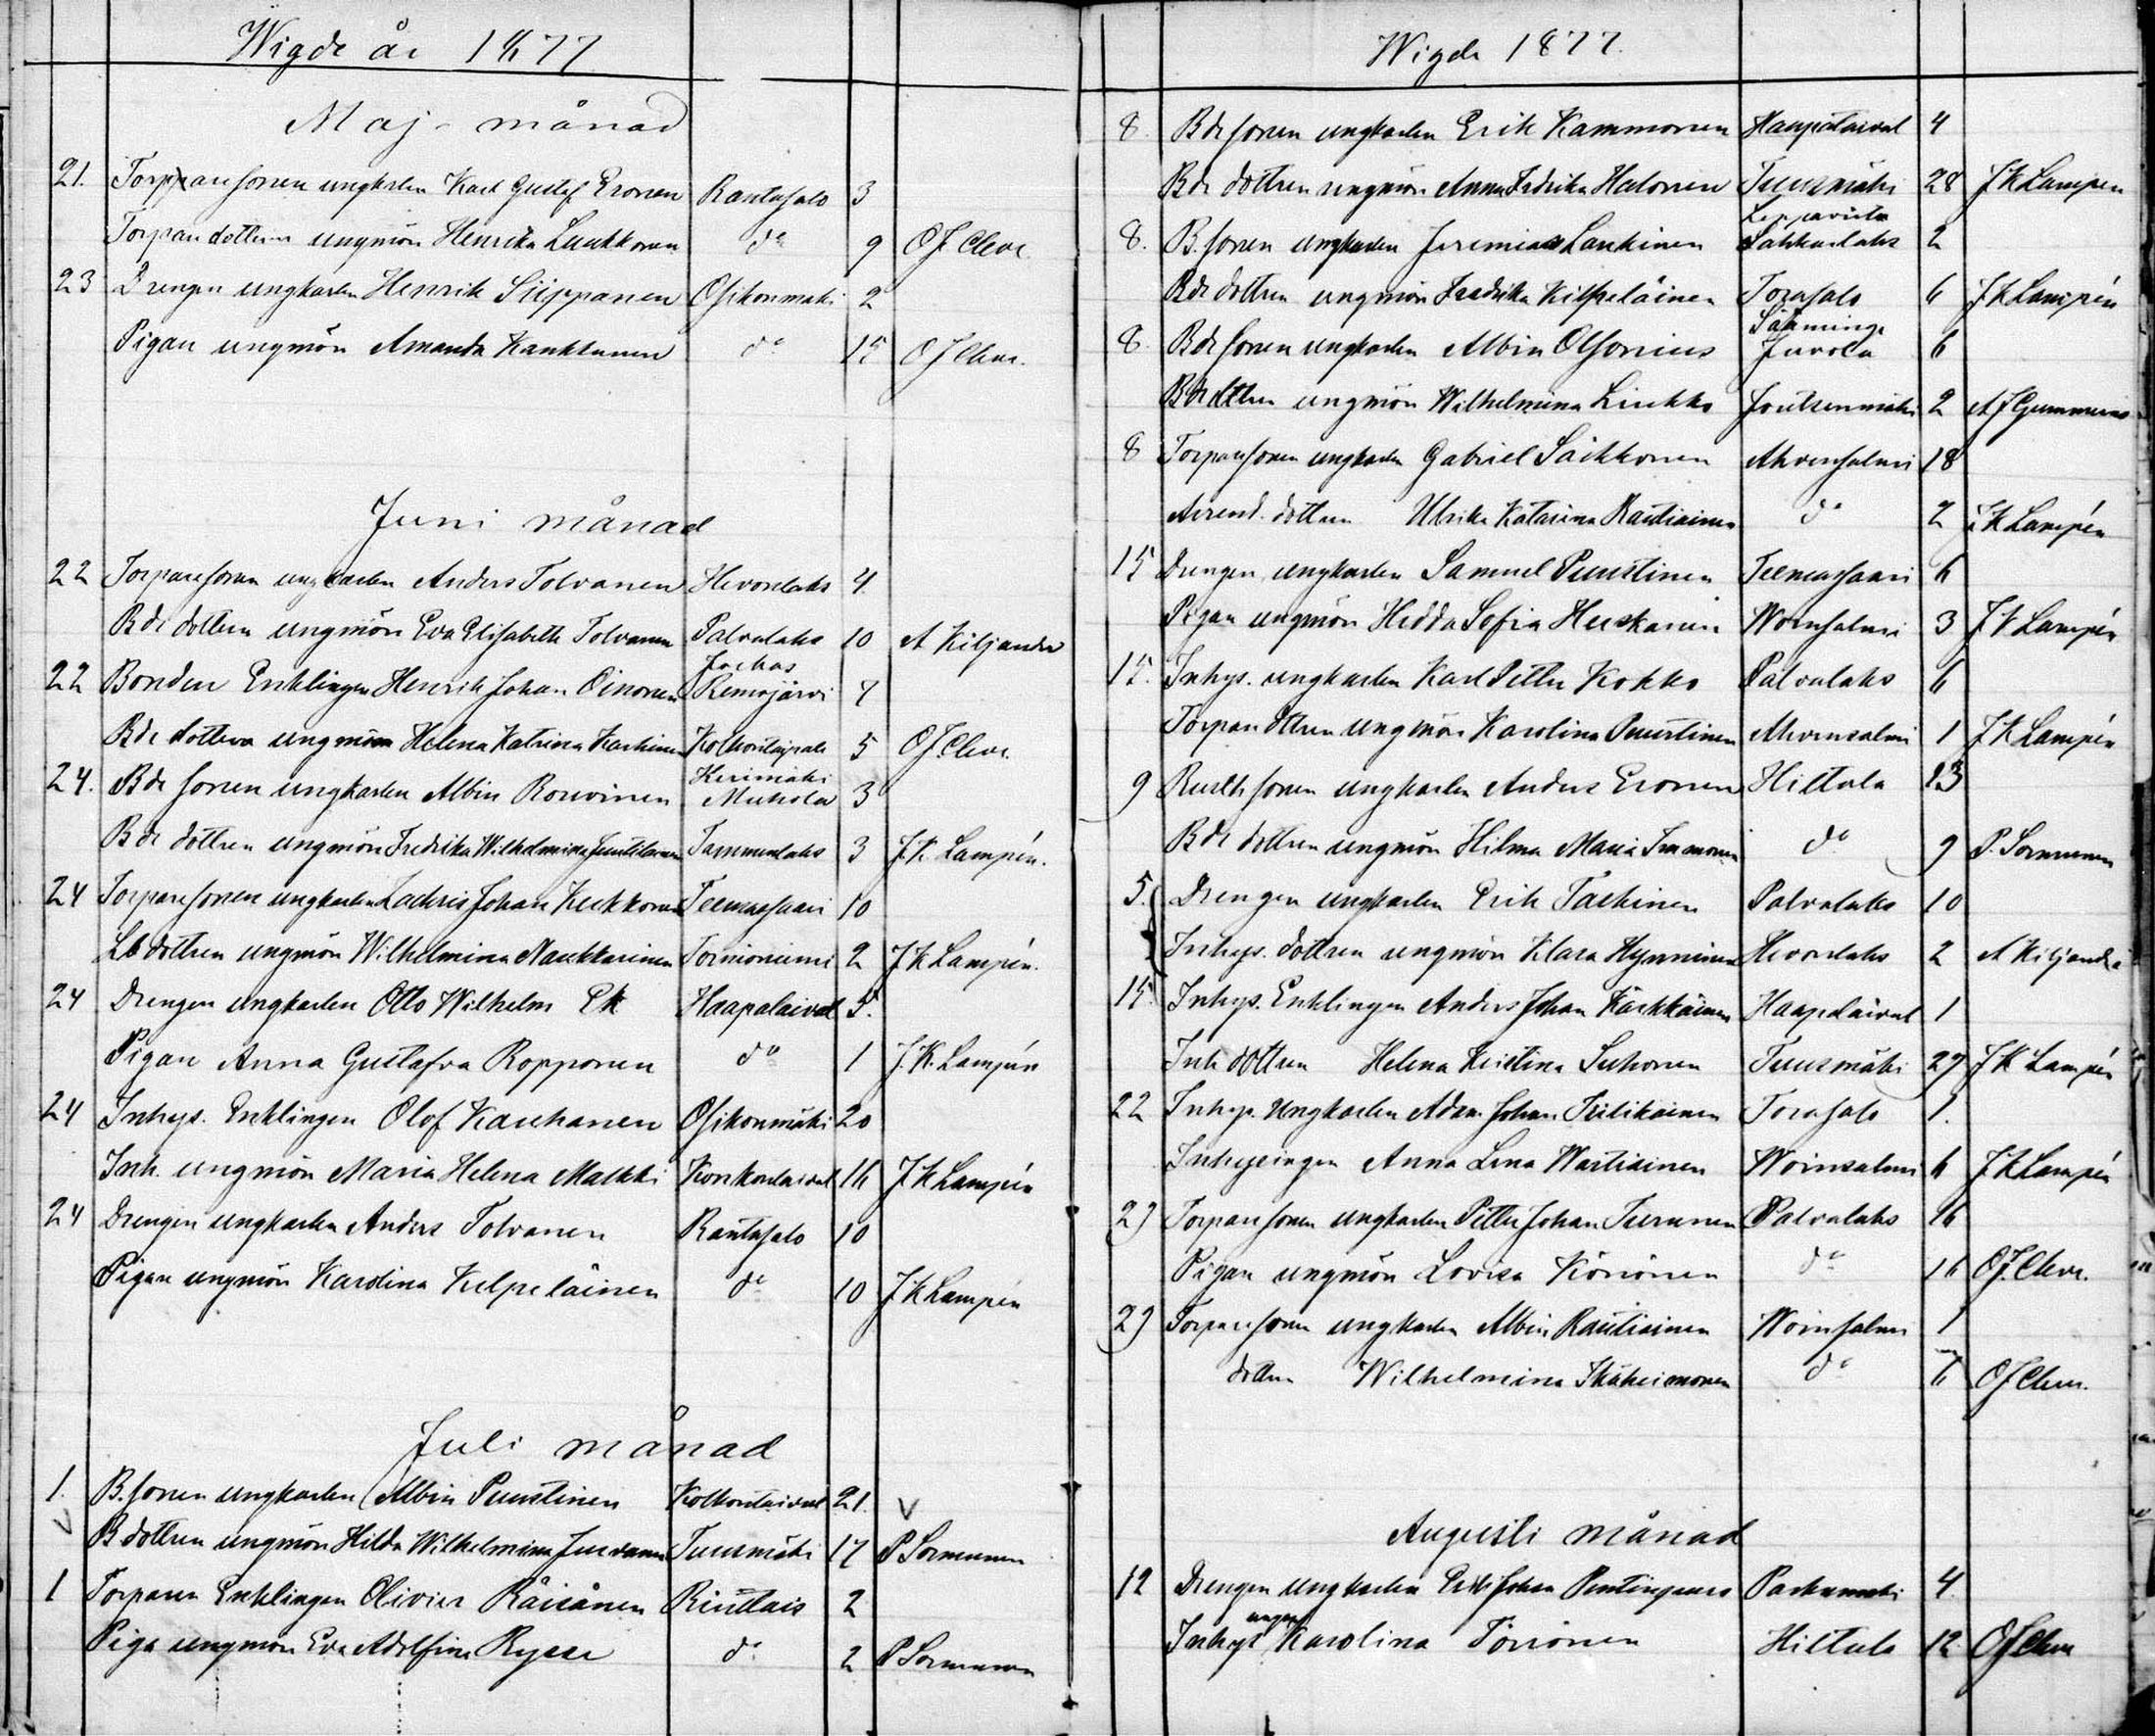 Wigde år 1877
Maj-månad
21. Torparesonen ungkarlen Karl Gustaf Eronen Rantasalo 3
Torpare dottren ungmön Henrika Laukkonen do 9 O J Cleve.
23 Drengen ungkarlen Henrik Siippanen Osikonmäki 2
Pigan ungmön Amanda Kankkunen do 15 O J Cleve.
Juni månad
22 Torparesonen ungkarlen Anders Tolvanen Hevonlaks 4
Bde dottren ungmön Eva Elisabeth Tolvanen Palvalaks 10 A Kiljander
Jockas
22 Bonden Enklingen Henrik Johan Oinonen Remojärvi 7
Bde dottren ungmön Helena Katrina Kolkontaipale 5 O J Cleve.
Kerimäki
24. Bde sonen ungkarlen Albin Rouvinen 3
Bde dottren ungmön Fredrika Wilhelmina Juutilainen Tammenlaks 3 J. K. Lampén.
24 Torparesonen ungkarlen Zachris Johan Kukkonen Teemassaari 10
Lb dottren ungmön Wilhelmina Naukkarinen Torvioniemi 2 J K Lampén.
24 Drengen ungkarlen Otto Wilhelm Ek Haapalaival 5.
Pigan Anna Gustafva Ropponen do 1 J. K. Lampén
24 Inhys. Enklingen Olof Kauhanen Osikonmäki 20
Inh. ungmön Maria Helena Malkki Konkonlaival 16 J K Lampén
24 Drengen ungkarlen Anders Tolvanen Rantasalo 10
Pigan ungmön Karolina Kilpeläinen do 10 J K Lampén
Juli månad
1. B. sonen ungkarlen Albin Puustinen Kolkontaival 21.
B dottren ungmön Hilda Wilhelmina Tuusmäki 17 P Sormunen
1 Torparen Enklingen Olivier Räisänen 2
Piga ungmön Eva Adolfina do 2 P Sormunen
Wigde 1877.
8. Bde sonen ungkarlen Erik Kammonen Haapataival 4
Bde dottren ungmön Anna Fredrika Halonen Tuusmäki 28 J K Lampén
Leppävirta
8. B. sonen ungkarlen Jeremias Laukinen 2
Bde dottren ungmön Fredrika Kilpeläinen Torasalo 6 J K Lampén
Sääminge
8. Bde sonen ungkarlen Albin Olsonius Juvola 6
Bde dttren ungmön Wilhelmina Liukko Joutsenmäki 2 A J Gummerus
8 Torparesonen ungkarlen Gabriel Säikkonen Ahvensalmi 18
Arrend. dottren Ulrika Katarina Rautiainen do 2 J K Lampén
15 Drengen ungkarlen Samuel Puustinen Teemassaari 6
Pigan ungmön Hedda Sofia Heiskanen Woinsalmi 3 J K Lampén
15. Inhys. ungkarlen Karl Petter Kokko Palvalaks 6
Torpare dttren ungmön Karolina Puustinen Ahvensalmi 1 J K Lampén
9 Rusth sonen ungkarlen Anders Eronen Hiltula 13
Bde dottren ungmön Hilma Maria Immonen do 9 P. Sormunen
5. Drengen ungkarlen Erik Palvalaks 10
Inhys. dottren ungmön Klara Hynninen Hevonlaks 2 A Kiljander
15. Inhys. Enklingen Anders Johan Kärkkäinen Haapataival 1
Inh dottren Helena Kristina Suhonen Tuusmäki 27 J K Lampén
22 Inhys. Ungkarlen Adam Johan Torasalo 1.
Inhysingen Anna Lena Wartiainen Woinsalmi 6 J K Lampén
29 Torparesonen ungkarlen Petter Johan Turunen Palvalaks 16
Pigan ungmön Lovisa Könönen do 16 O J. Cleve.
29 Torparesonen ungkarlen Albin Rautiainen Woinsalmi 1
dottren Wilhelmina Ikäheimonen do 6 O J Cleve.
Augusti månad
12 Drengen ungkarlen Erik Johan 4.
Inhys Karolina Törrönen Hiltula 12 O J Cleve